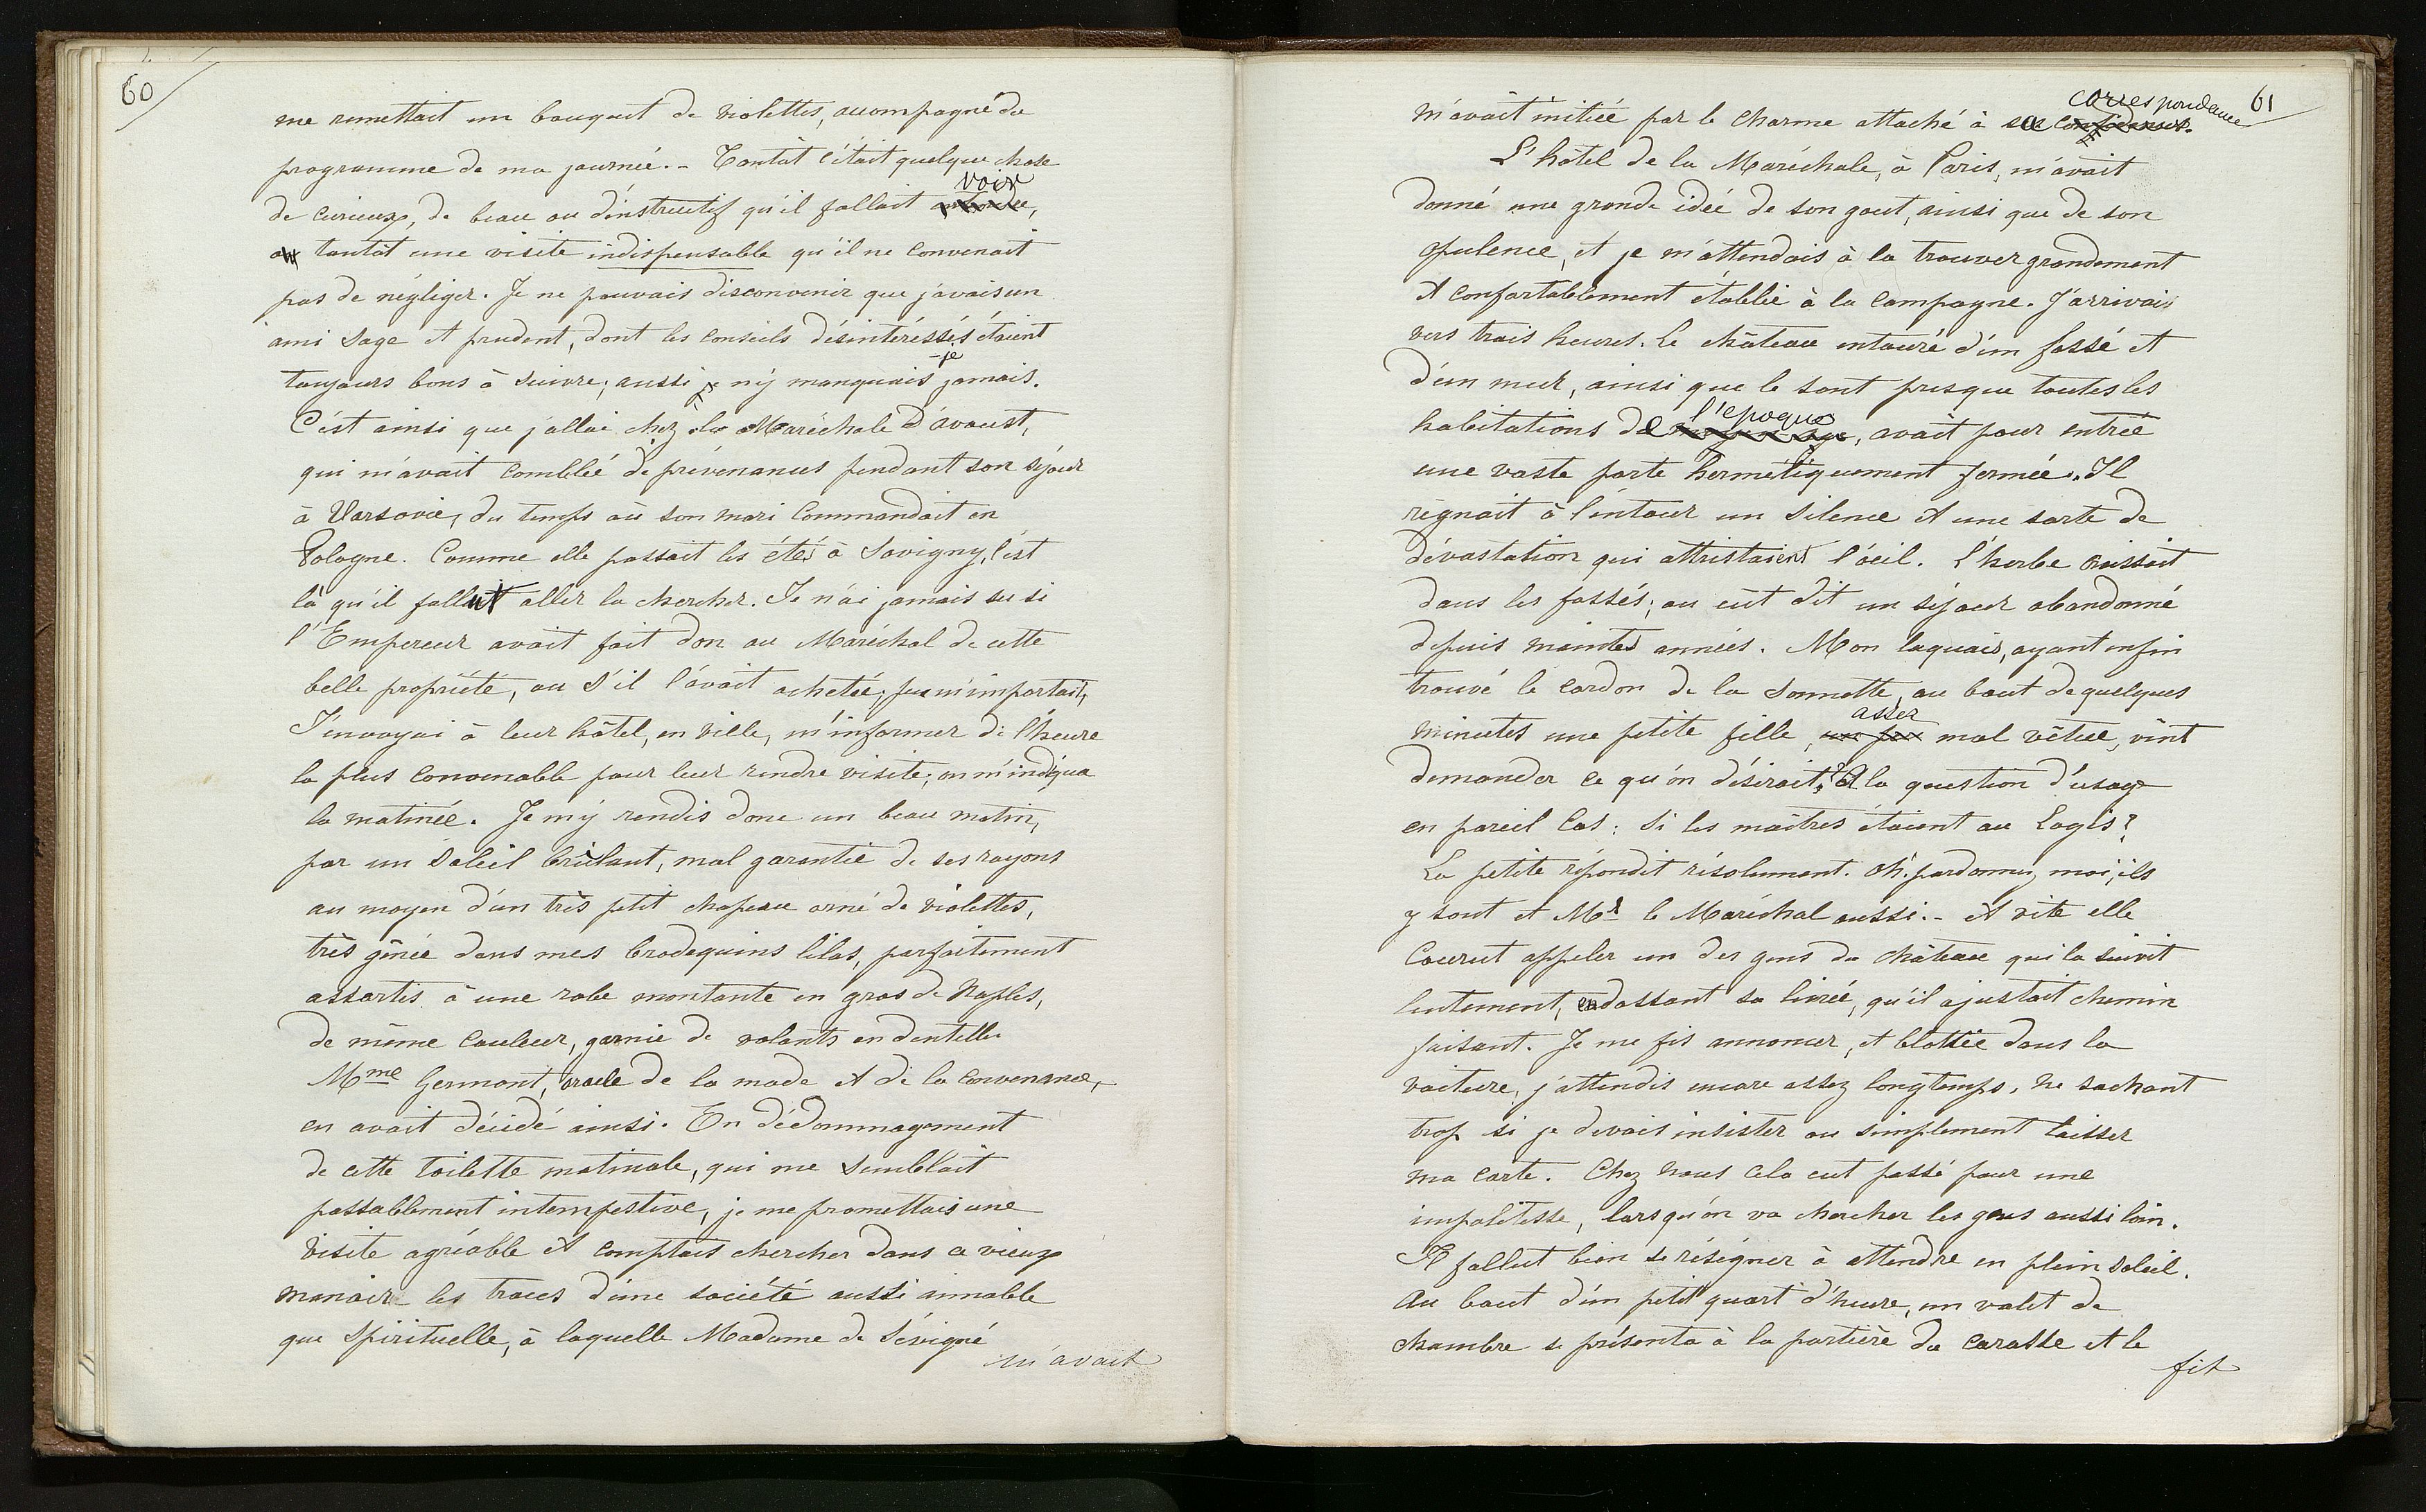 60
me remettait un bouquet de violettes, accompagné du
programme de ma journée. - Tantôt c'était quelque chose
voir
de curieux, de beau ou d'instructif qu'il fallait,
tantôt une visite indispensable qu'il ne convenait
pas de négliger. Je ne pouvais disconvenir que j'avais un
ami sage et prudent, dont les conseils désintéressés étaient
-je
toujours bons à suivre; aussi n'y manquais jamais.
C'est ainsi que j'allai chez la Maréchale D'avoust,
qui m'avait comblée de prévenances pendant son séjour
à Varsovie, du temps où son mari Commandait en
Pologne. Comme elle passait les étés à Savigny, c'est
là qu'il fallut aller la chercher. Je n'ai jamais su si
l'Empereur avait fait don au Maréchal de cette
belle propriété, ou s'il l'avait achetée; peu m'importait,
J'envoyai à leur hôtel, en ville, m'informer de l'heure
la plus convenable pour leur rendre visite; on m'indiqua
la matinée. Je m'y rendis donc un beau matin,
par un Soleil brûlant, mal garantie de ses rayons
au moyen d'un très petit chapeau orné de violettes,
très gênée dans mes brodequins lilas, parfaitement
assortis à une robe montante en gros de Naples,
de même couleur, garnie de volants en dentelle.
Mme Germont, oracle de la mode et de la convenance,
en avait décidé ainsi. En dédommagement
de cette toilette matinale, qui me semblait
passablement intempestive, je me promettais une
visite agréable et comptais chercher dans ce vieux
manoir les traces d'une société aussi aimable
que Spirituelle, à laquelle Madame de Sévigné
m'avait
61
correspondance
m'avait initiée par le charme attaché à sa
L'hôtel de la Maréchale, à Paris, m'avait
donné une grande idée de son gout, ainsi que de son
opulence, et je m'attendais à la trouver grandement
et confortablement établie à la campagne. J'arrivais
vers trois heures. Le château entouré d'un fossé et
d'un mur, ainsi que le sont presque toutes les
l'epoque
habitations de, avait pour entrée
une vaste porte hermétiquement fermée. Il
règnait à l'entour un silence et une sorte de
dévastation qui attristaient l'oeil. L'herbe croissait
dans les fossés; on eût dit un séjour abandonné
depuis maintes années. Mon laquais, ayant enfin
trouvé le cordon de la sonnette, au bout de quelques
assez
minutes une petite fille, un peu mal vêtue, vint
demander ce qu'on désirait. A la question d'usage
en pareil cas: si les maîtres étaient au Logis?
La petite répondit résolument. Oh! pardonnez moi, ils
y sont et Mr le Maréchal aussi. - et vite elle
courut appeler un des gens du château qui la suivit
lentement, endossant sa livrée, qu'il ajustait chemin
faisant. Je me fis annoncer, et blottie dans la
voiture, j'attendis encore assez longtemps, ne sachant
trop si je devais insister ou simplement laisser
ma carte. Chez nous cela eut passé pour une
impolitesse, lorsqu'on va chercher les gens aussi loin.
Il fallut bien se résigner à attendre en plein soleil.
Au bout d'un petit quart d'heure, un valet de
chambre se présenta à la portière du carosse et le
fit